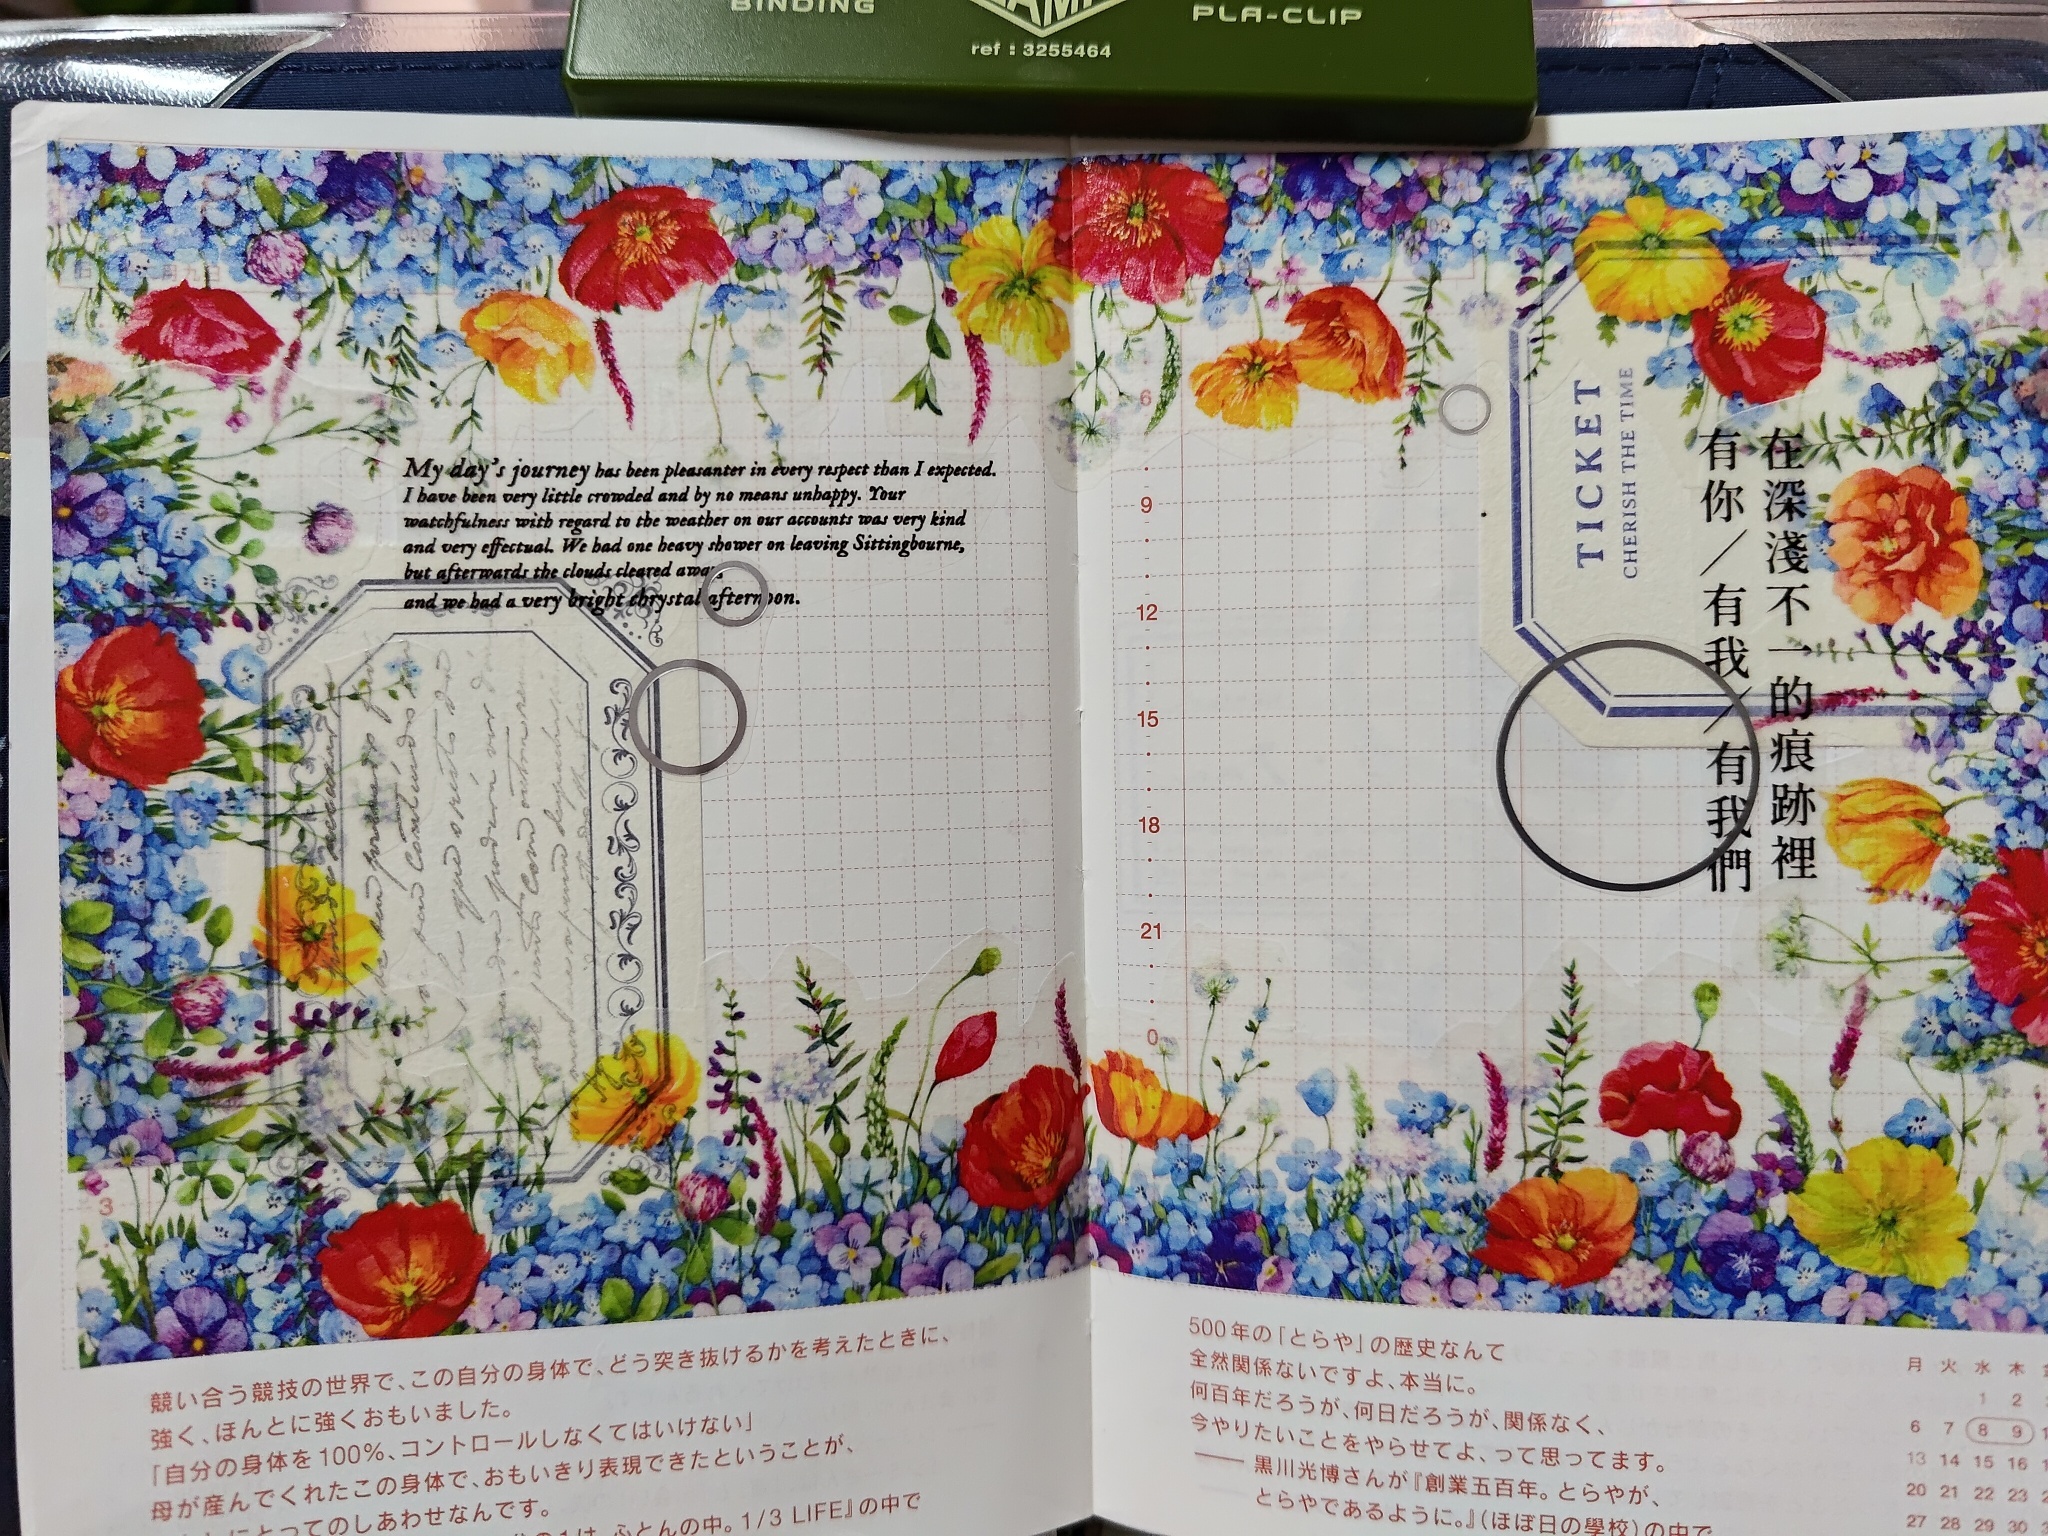 BINDING
PLA-CLIP
ref : 3255464
My day's journey has been pleasanter in every respect than I expected.
I have been very little crowded and by no means unhappy. Your
watchfulness with regard to the weather on our accounts was very kind
and very effectual. We had one heavy shower on leaving Sittingbourne,
but afterwards the clouds cleared away,
and we had a very bright chrystal afternoon.
TICKET
CHERISH THE TIME
在深淺不一的痕跡裡
有你／有我／有我們
6
9
12
15
18
21
0
3
競い合う競技の世界で、この自分の身体で、どう突き抜けるかを考えたときに、
強く、ほんとに強くおもいました。
「自分の身体を100%、コントロールしなくてはいけない」
母が産んでくれたこの身体で、おもいきり表現できたということが、
にとってのしあわせなんです。
心とんの中。1/3 LIFE』の中で
500年の「とらや」の歴史なんて
全然関係ないですよ、本当に。
何百年だろうが、何日だろうが、関係なく、
今やりたいことをやらせてよ、って思ってます。
—— 黒川光博さんが『創業五百年。とらやが、
とらやであるように。』(ほぼ日の學校)の中で
月 火 水 木
1 2
6 7 8 9
13 14 15 16
20 21 22 23
27 28 29 30